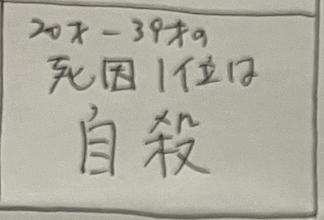 20才-39才の
死因1位は
自殺